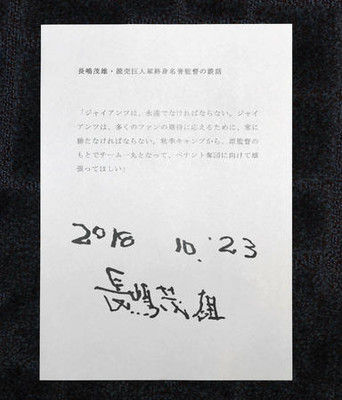 長嶋茂雄・読売巨人軍終身名誉監督の談話
「ジャイアンツは、永遠でなければならない。ジャイ
アンツは、多くのファンの期待に応えるために、常に
勝たなければならない。秋季キャンプから、原監督の
もとでチーム一丸となって、ペナント奪回に向けて頑
張ってほしい」
2018 10.23
長嶋茂雄